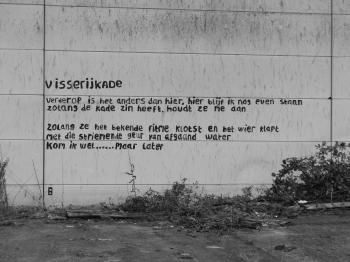 visserijkade
verderop is het anders dan hier, hier blijf ik nog even staan
zolang de kade zin heeft, houdt ze me aan
zolang ze het bekende ritme klotst en het wier klapt
met die striemende geur van afgaand water
kom ik wel.......maar later